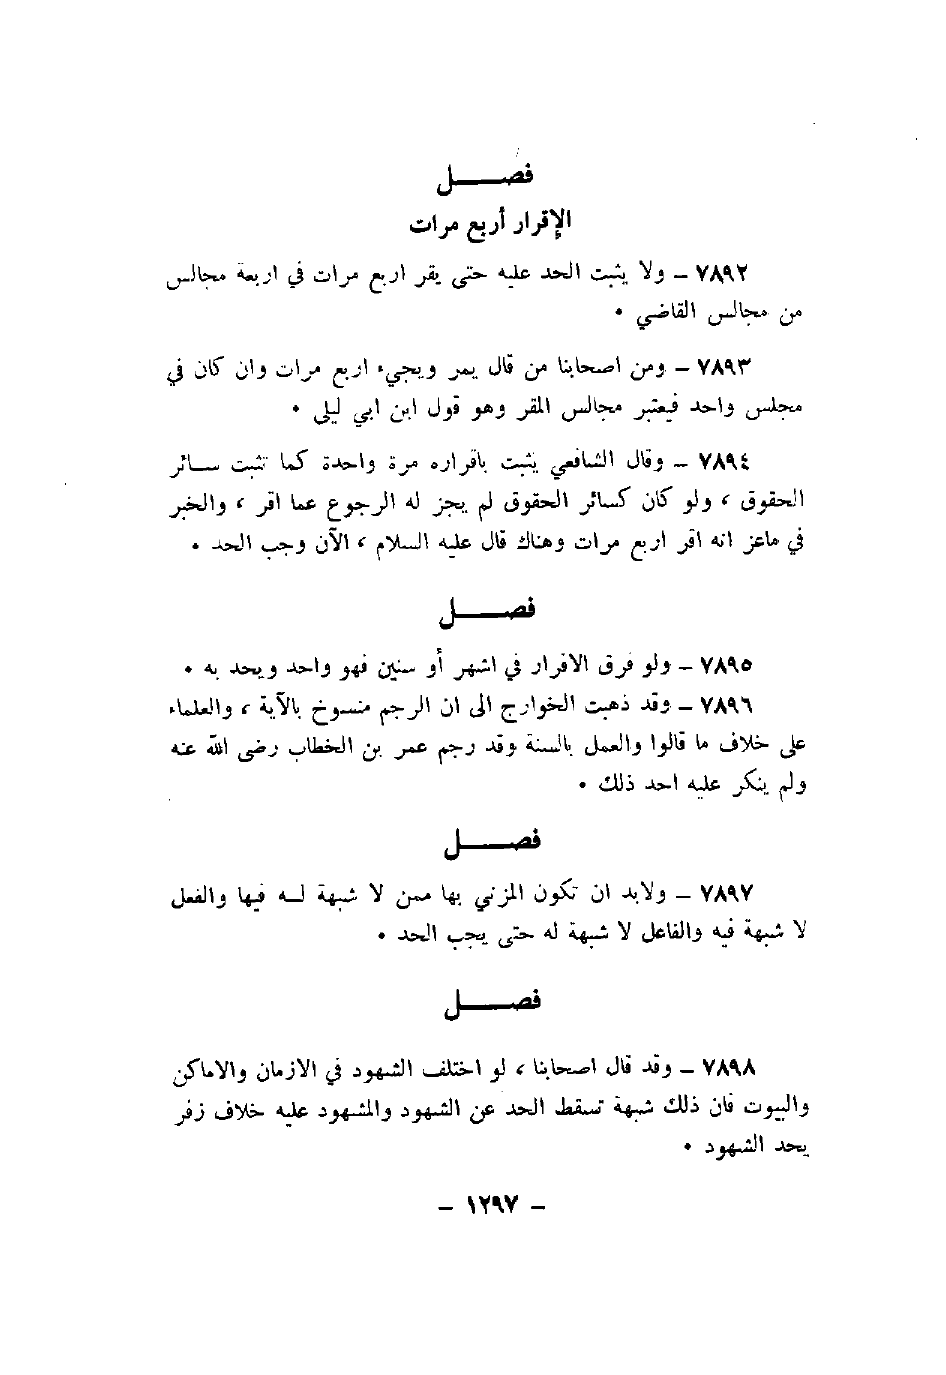 فصـــــل
الإقرار أربع مرات
٧٨٩٢ – ولا يثبت الحد عليه حتى يقر اربع مرات في اربعة مجالس
من مجالس القاضي •
٧٨٩٣ – ومن اصحابنا من قال يمر ويجيء اربع مرات وان كان في
مجلس واحد فيعتبر مجالس المقر وهو قول ابن ابي ليلى •
٧٨٩٤ – وقال الشافعي يثبت باقراره مرة واحدة كما تثبت ســائر
الحقوق ، ولو كان كسائر الحقوق لم يجز له الرجوع عما اقر ، والخبر
في ماعز انه اقر اربع مرات وهناك قال عليه السلام ، الآن وجب الحد •
فصـــــل
٧٨٩٥ – ولو فرق الاقرار في اشهر أو سنين فهو واحد ويحد به •
٧٨٩٦ – وقد ذهبت الخوارج الى ان الرجم منسوخ بالآية ، والعلماء
على خلاف ما قالوا والعمل بالسنة وقد رجم عمر بن الخطاب رضى الله عنه
ولم ينكر عليه احد ذلك •
فصـــــل
٧٨٩٧ – ولابد ان تكون المزني بها ممن لا شبهة لــه فيها والفعل
لا شبهة فيه والفاعل لا شبهة له حتى يجب الحد •
فصـــــل
٧٨٩٨ – وقد قال اصحابنا ، لو اختلف الشهود في الازمان والاماكن
والبيوت فان ذلك شبهة تسقط الحد عن الشهود والمشهود عليه خلاف زفر
يحد الشهود •
– ١٢٩٧ –